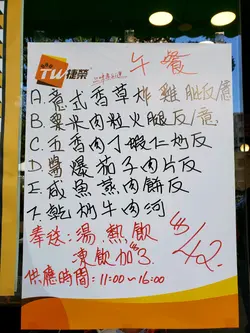 TW捷榮
午餐
A. 意式香草炸雞腿反/意
B. 粟米肉粒火腿反/意
C. 五香肉丁蝦仁炒反
D. 醬爆茄子肉片反
E. 咸魚蒸肉餅反
F. 乾炒牛肉河
奉送:湯.熱飲
凍飲加3
$42.
供應時間:11:00~16:00